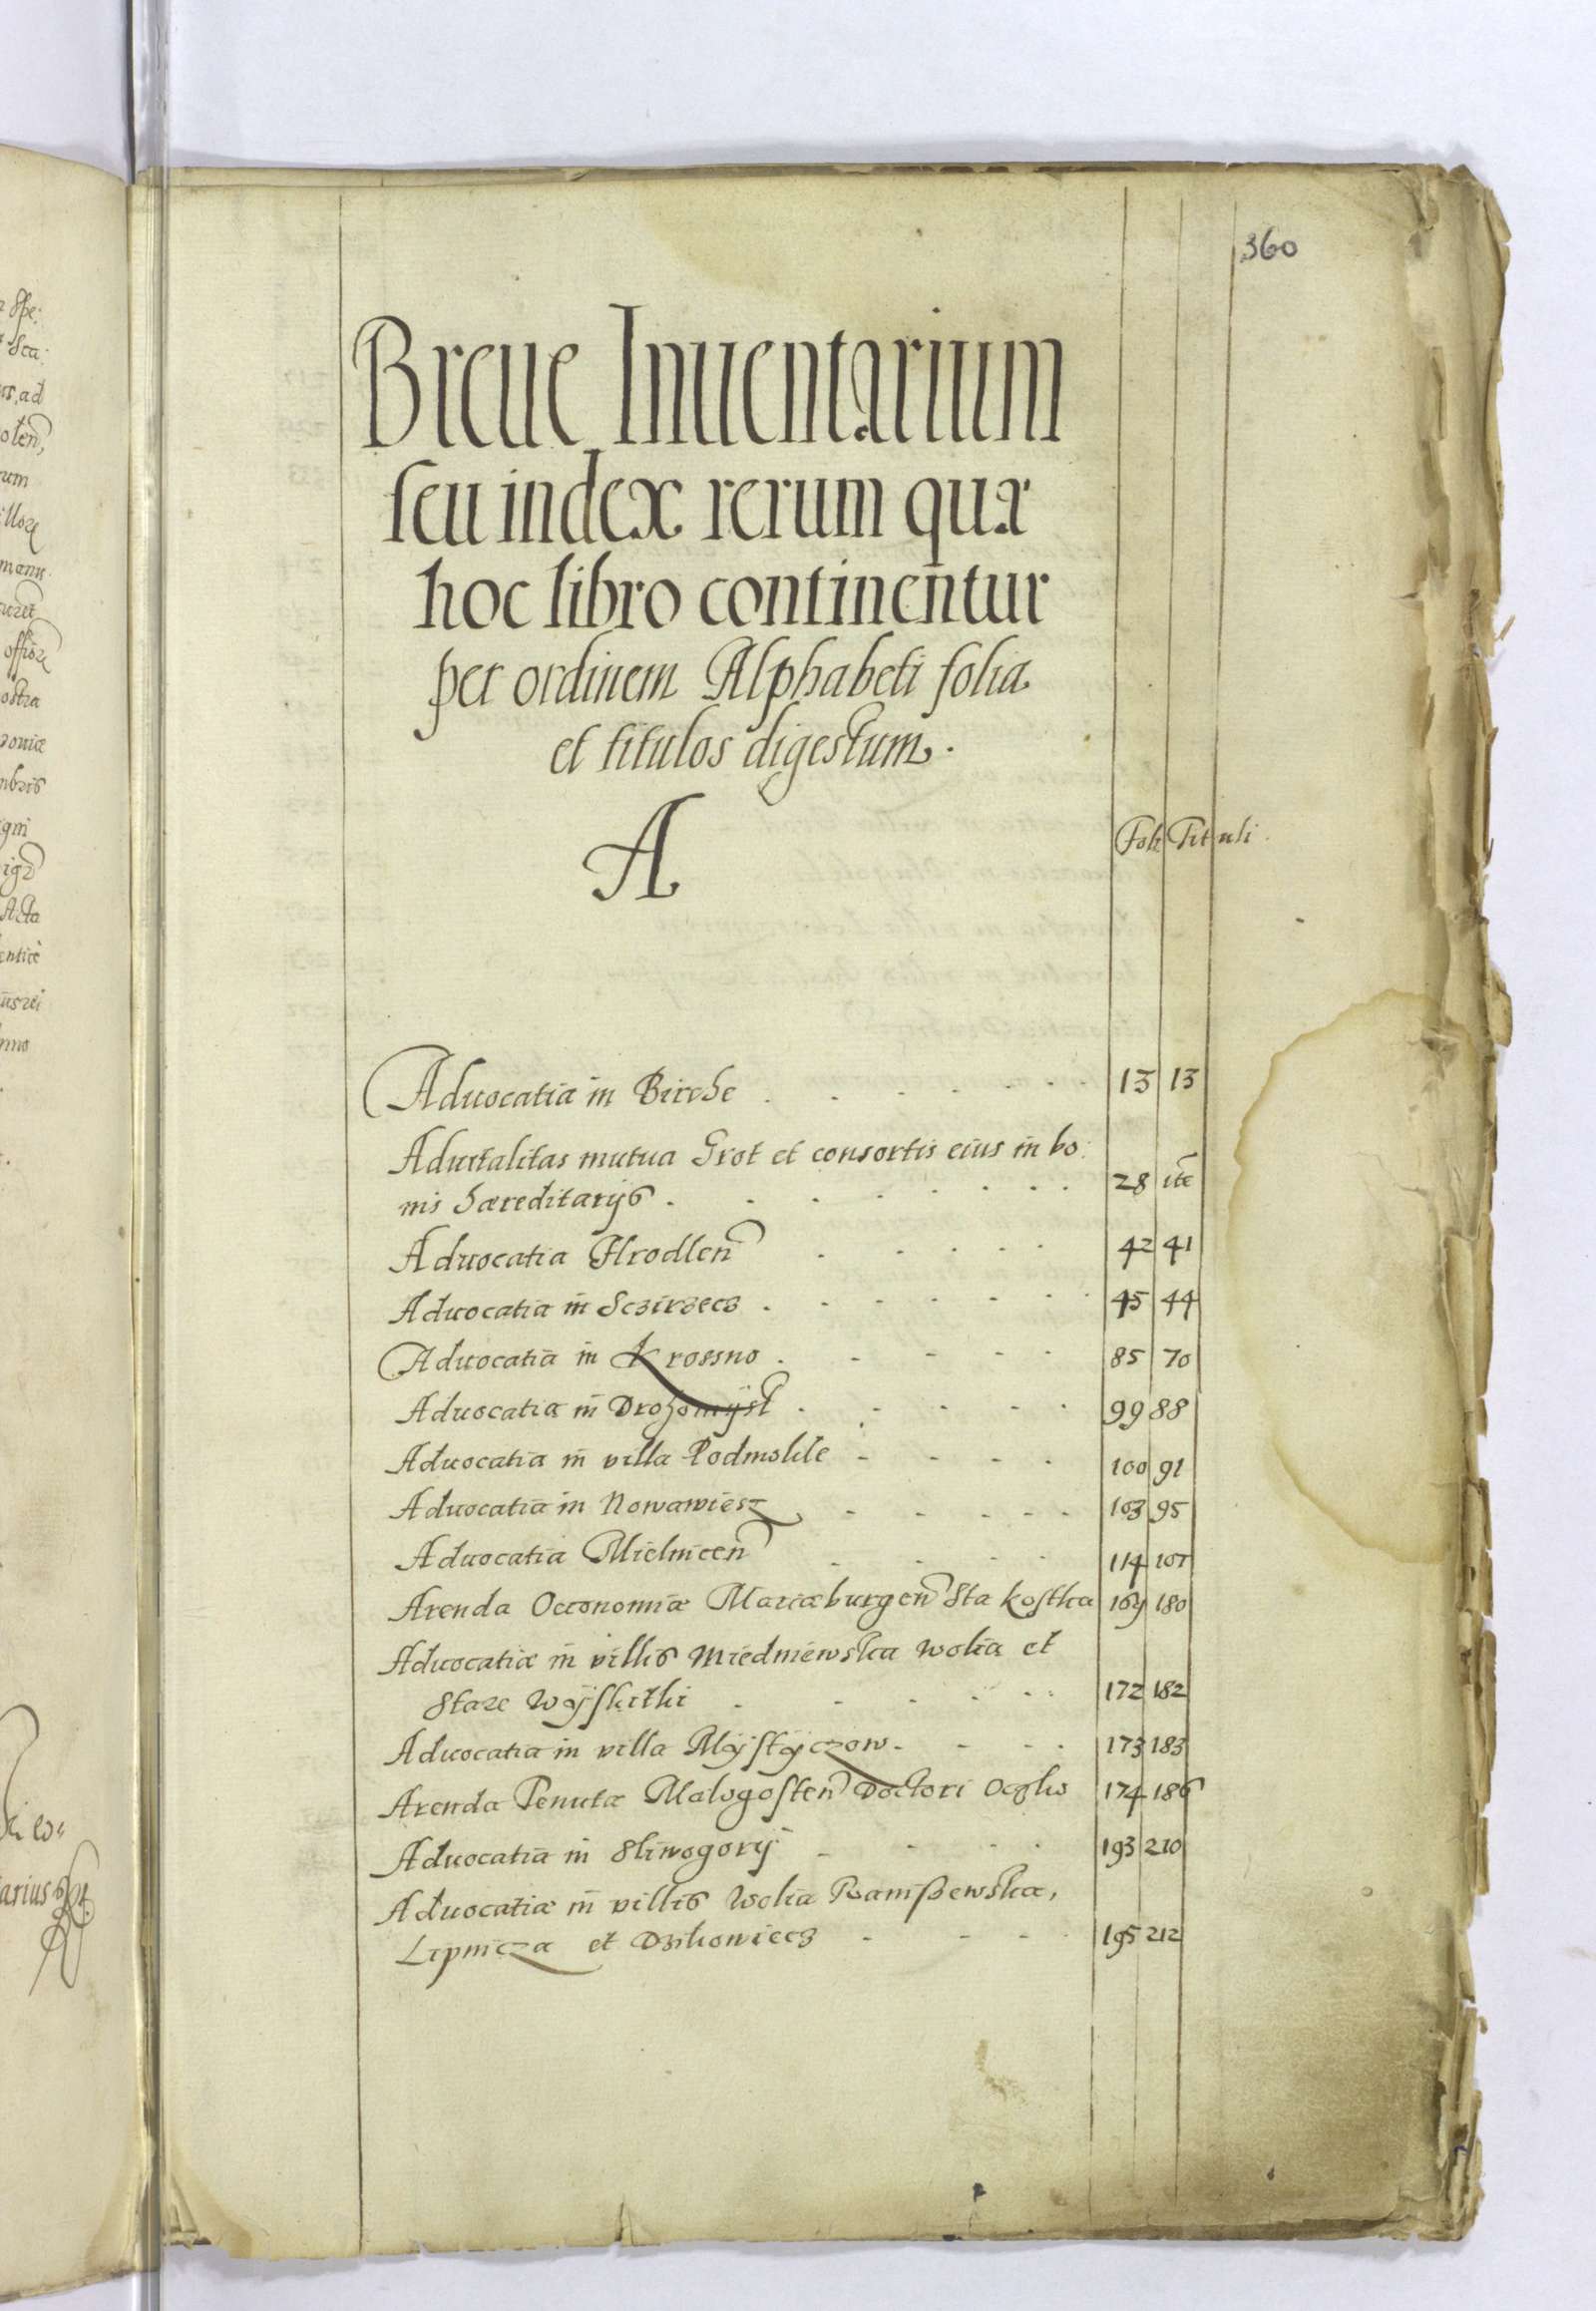 360
Breue Inuentarium
seu index rerum quæ
hoc libro continentur
per ordinem Alphabeti folia
et titulos digestum.
A
Foli Tituli
Aduocatia in Birche 13 13
Aduitalitas mutua Grot et consortis eius in bo:
nis hæreditarijs 28 itē
Aduocatia Hrodlen 42 41
Aduocatia in Sczirzecz 45 44
Aduocatia in Krossno 85 70
Aduocatia in Drohomÿsl 99 88
Aduocatia in villa Podmokle 100 91
Aduocatia in Nowawiesz 103 95
Aduocatia Mielnicen 114 107
Arenda Oeconomiæ Mariæburgen Sta Kostka 169 180
Aduocatiæ in villis Miedniewska wolia et
Stare Wÿskitki 172 182
Aduocatia in villa Mÿstÿczow 173 183
Arenda Tenutæ Malogosten Doctori Oczko 174 186
Aduocatia in Sliwogorÿ 193 210
Aduocatiæ in villis Wolia Ranißewska,
Lipnicza et Dzikowiecz 195 212